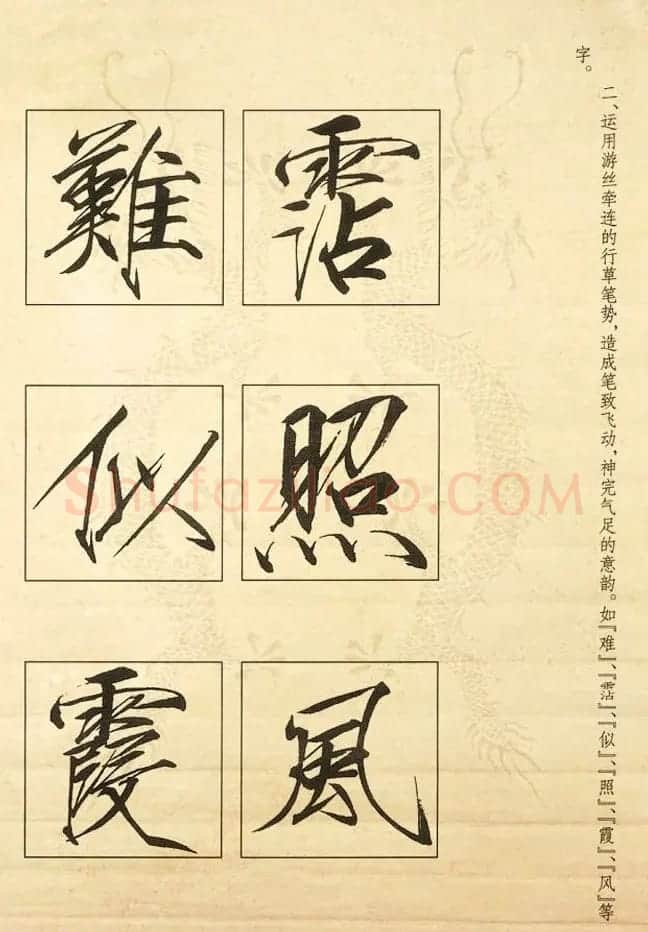 二、运用游丝牵连的行草笔势，造成笔致飞动，神完气足的意韵。如『难』、『霑』、『似』、『照』、『霞』、『风』等
字。
難
霑
似
照
霞
風
Shufaziliao.COM